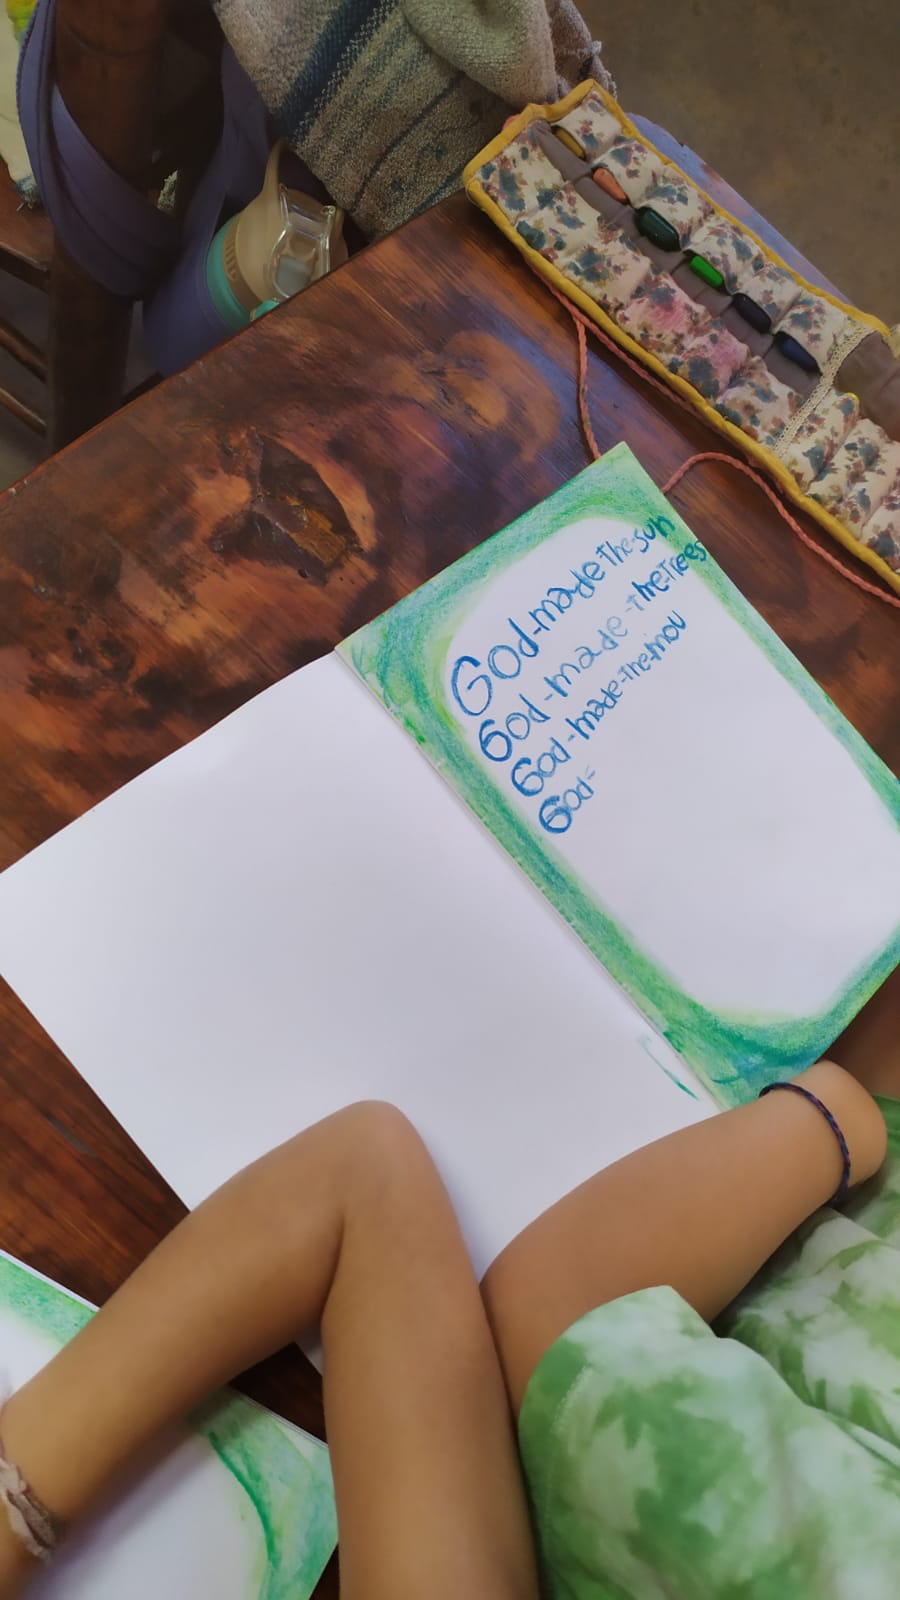 God-made-The-sun
God-made-The-Trees
God-made-The-mou
God=